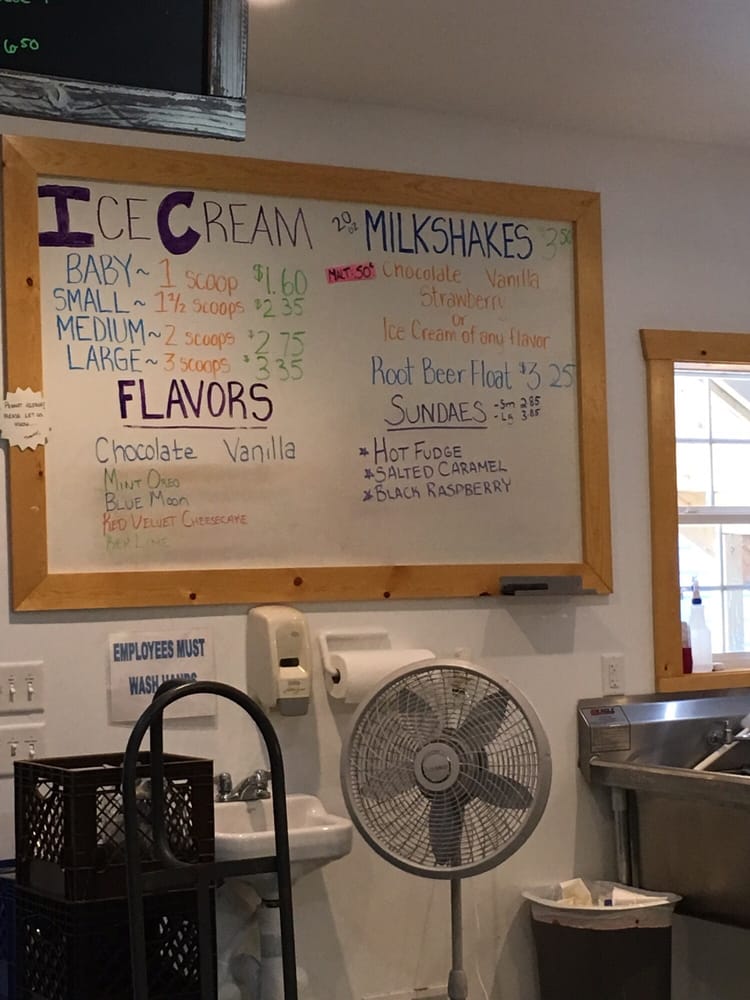 6.50
ICE CREAM
BABY~ 1 SCOOP $1.60
SMALL~ 1 1/2 SCOOPS $2.35
MEDIUM~ 2 SCOOPS $2.75
LARGE~ 3 SCOOPS $3.35
FLAVORS
Chocolate Vanilla
MINT OREO
BLUE MOON
RED VELVET CHEESECAKE
KEY LIME
20 oz MILKSHAKES 3.50
MALT .50¢ Chocolate Vanilla
Strawberry
or
Ice Cream of any flavor
Root Beer Float $3.25
SUNDAES -Sm 2.85
-Lg 3.85
* HOT FUDGE
* SALTED CARAMEL
* BLACK RASPBERRY
PLEASE LET US
EMPLOYEES MUST
WASH HANDS